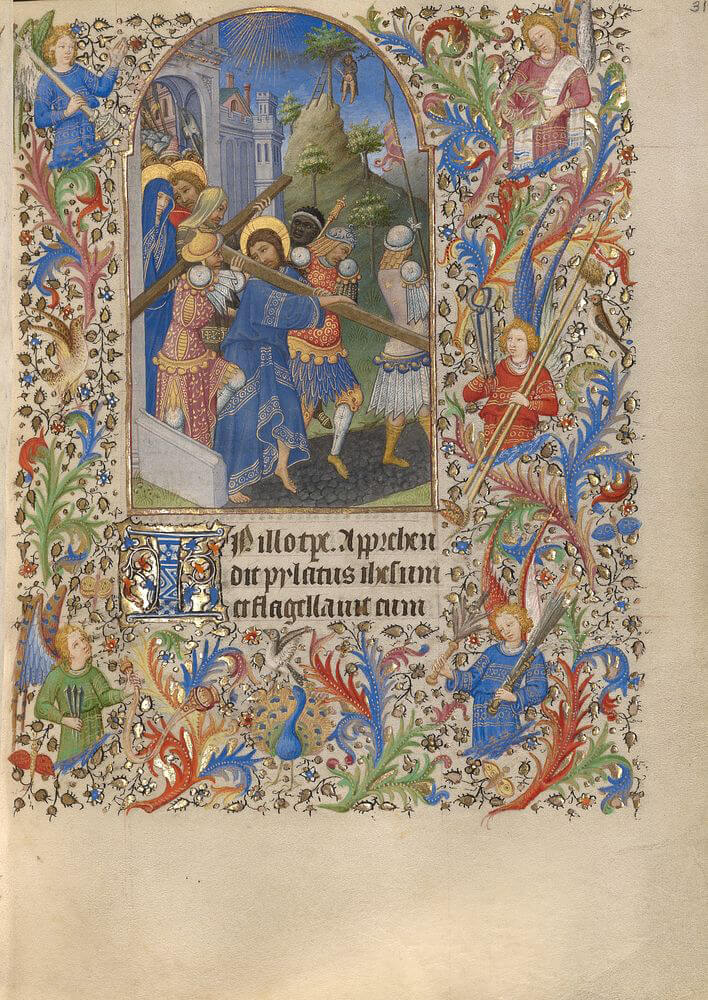 31
IN illo tpe. Apprehen
dit pylatus ihesum
et flagellavit eum